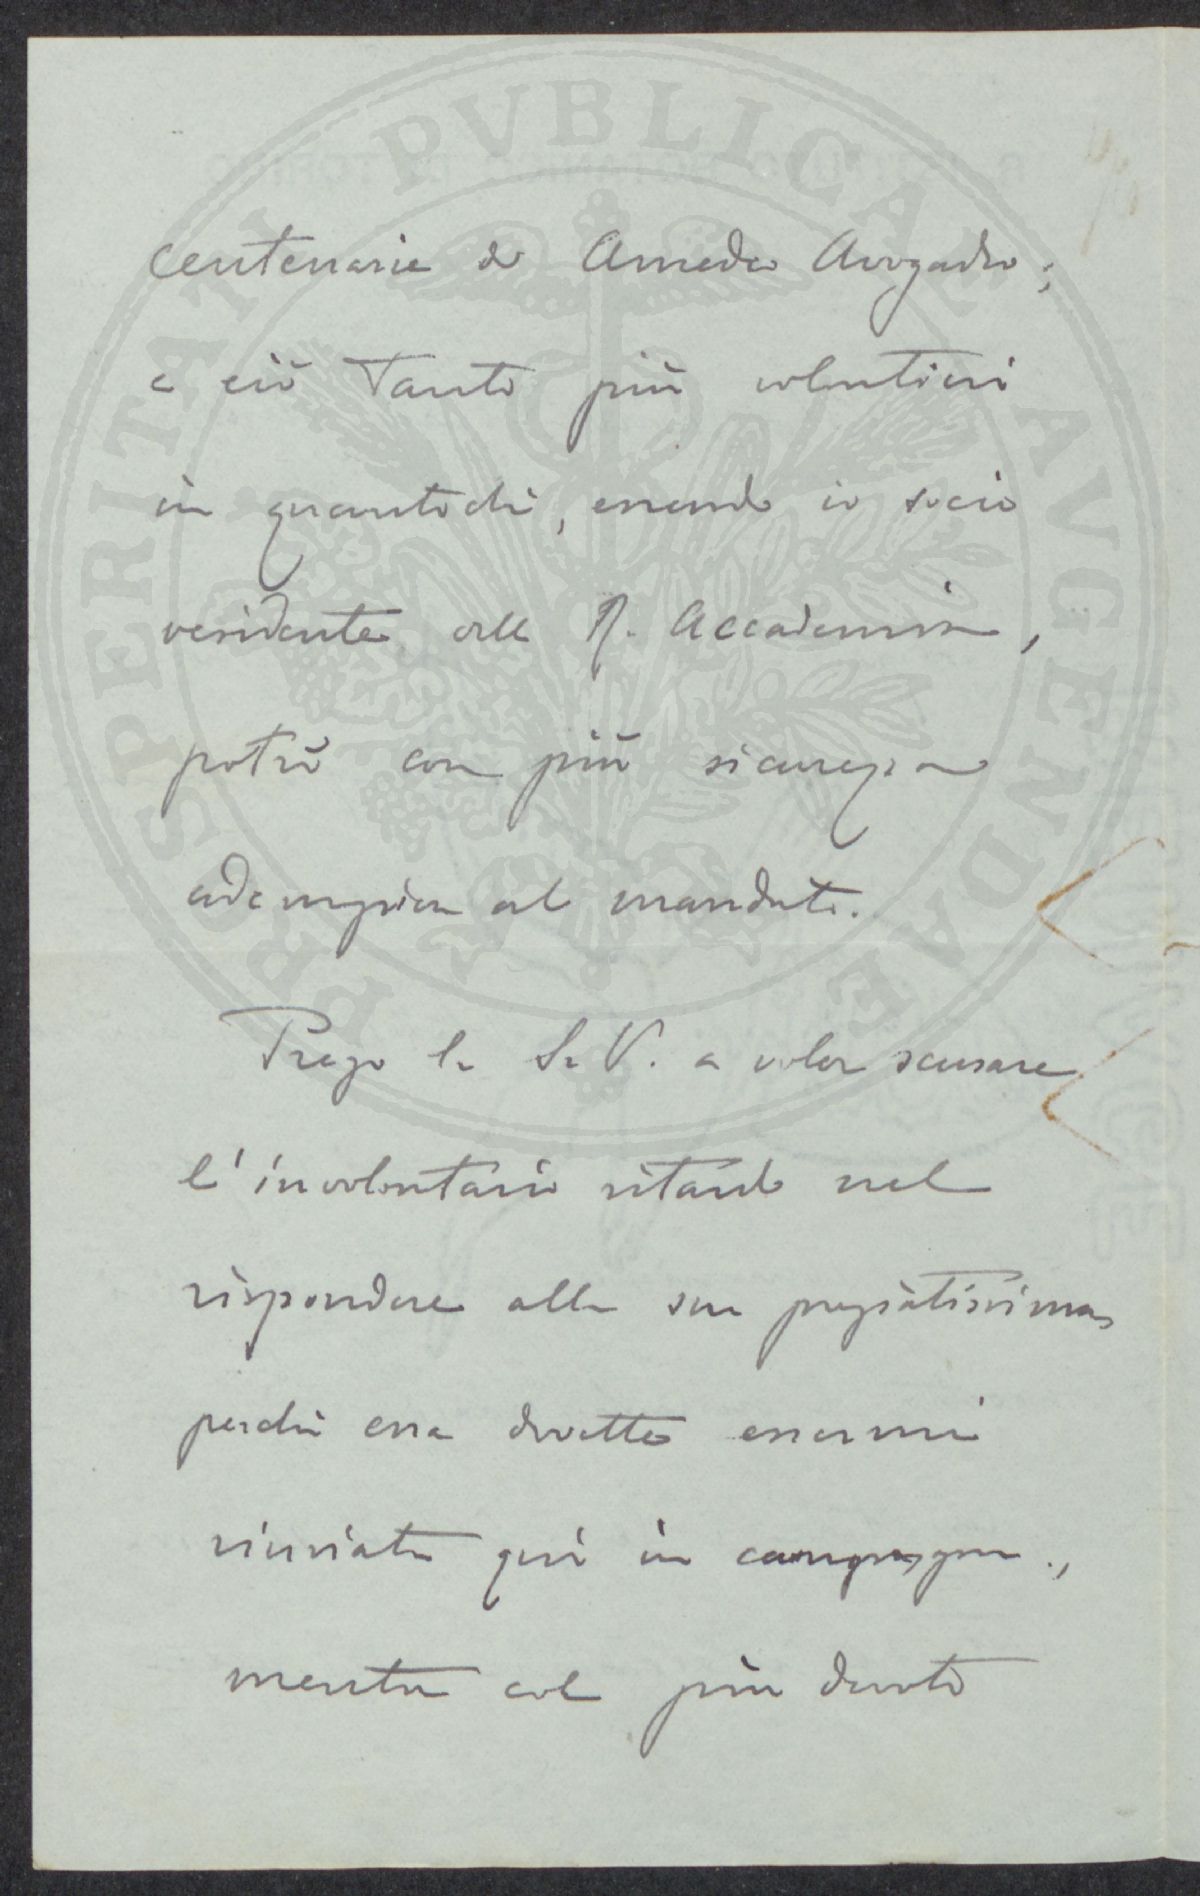 centenarie di Amedeo Avogadro;
e ciò tanto più volontieri
in quantochè, essendo io socio
residente alla R. Accademia,
potrò con più sicurezza
adempiere al mandato.
Prego la S. V. a voler scusare
l'involontario ritardo nel
rispondere alla sua pregiatissima
perchè essa dovette essermi
rinviata qui in campagna.,
mentre col più devoto
PROSPERITATI PVBLICAE AVGENDAE